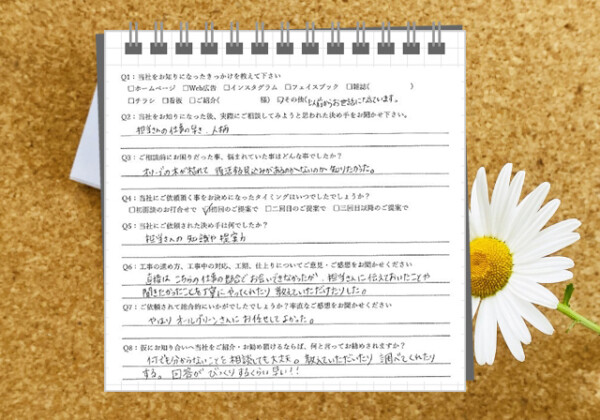 Q1：当社をお知りになったきっかけを教えて下さい
□ホームページ □Web広告 □インスタグラム □フェイスブック □雑誌(　　　)
□チラシ □看板 □ご紹介(　　　様) ☑その他(以前からお世話になっています。
Q2：当社をお知りになった後、実際にご相談してみようと思われた決め手をお聞かせ下さい。
担当さんの仕事の早さ、人柄
Q3：ご相談前にお困りだった事、悩まれていた事はどんな事でしたか？
オリーブの木が枯れて 復活する見込みがあるのか〜ないのか 知りたかった。
Q4：当社にご依頼頂く事をお決めになったタイミングはいつでしたでしょうか？
□初面談のお打合せで ☑初回のご提案で □二回目のご提案で □三回目以降のご提案で
Q5：当社にご依頼された決め手は何でしたか？
担当さんの 知識や提案力
Q6：工事の進め方、工事中の対応、工期、仕上りについてご意見・ご感想をお聞かせください
直接は こちらの仕事の都合で お会いできなかったが、担当さんに伝えておいたことや
聞きたかったことも丁寧に やってくれたり 教えていただけたりした。
Q7：ご依頼されて総合的にいかがでしたでしょうか？率直なご感想をお聞かせください
やはり オールグリーンさんに お任せして よかった。
Q8：仮にお知り合いへ当社をご紹介・お勧め頂けるならば、何と言ってお勧めされますか？
何も分からないことを 相談しても大丈夫。教えていただいたり 調べてくれたり
する。回答が びっくりするくらい早い!!